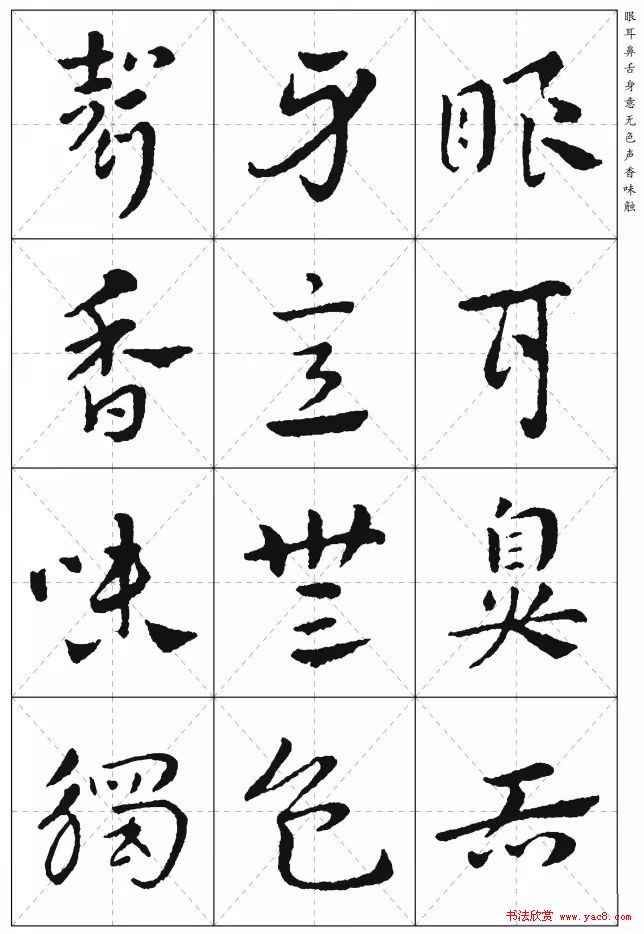 眼耳鼻舌身意无色声香味触
眼耳鼻舌
身意無色
聲香味觸
书法欣赏 www.yac8.com